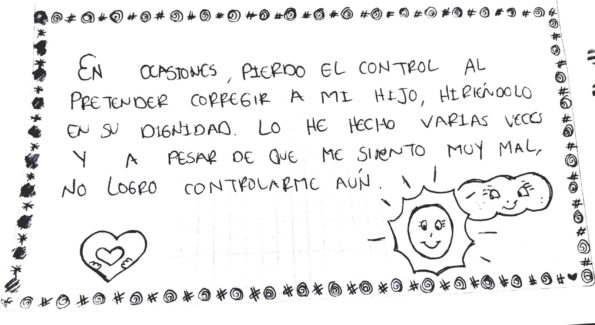 EN OCASIONES, PIERDO EL CONTROL AL
PRETENDER CORREGIR A MI HIJO, HIRIÉNDOLO
EN SU DIGNIDAD. LO HE HECHO VARIAS VECES
Y A PESAR DE QUE ME SIENTO MUY MAL,
NO LOGRO CONTROLARME AÚN.